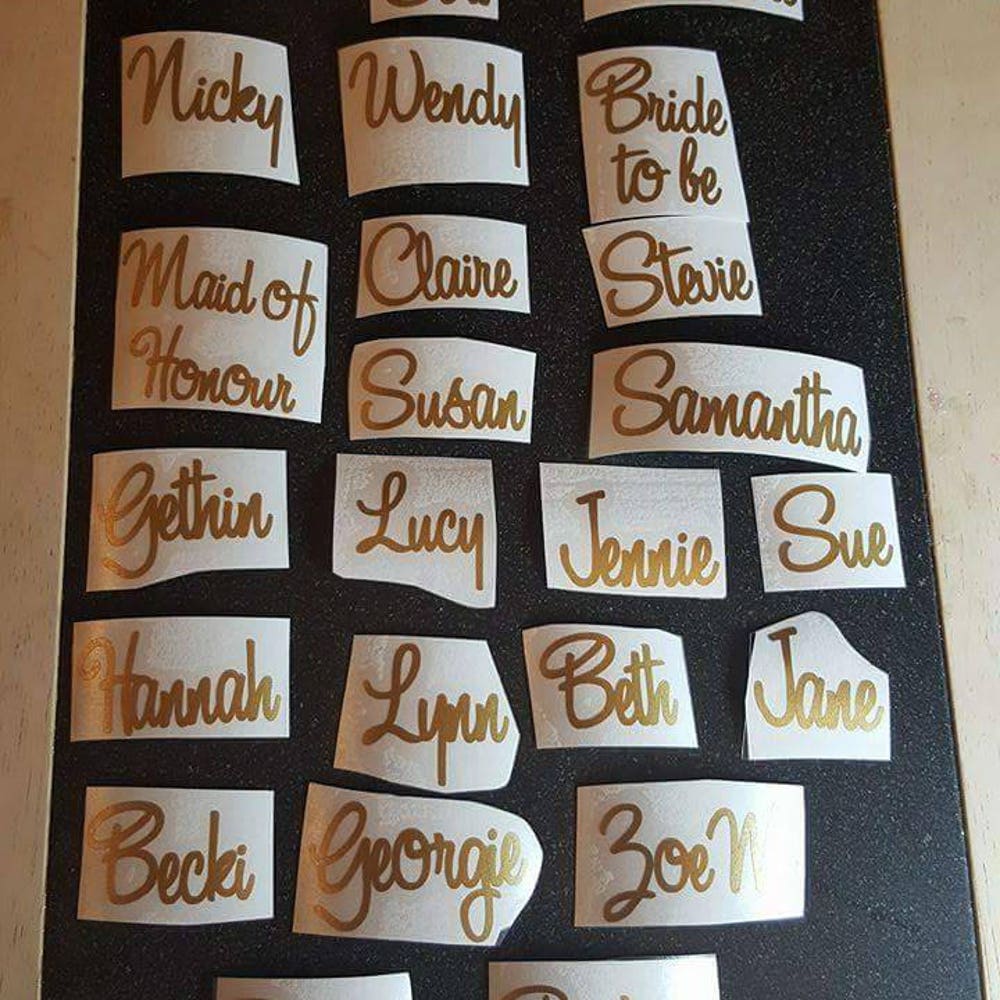 Nicky
Wendy
Bride
to be
Maid of
Honour
Claire
Stevie
Susan
Samantha
Gethin
Lucy
Jennie
Sue
Hannah
Lynn
Beth
Jane
Becki
Georgie
Zoe W